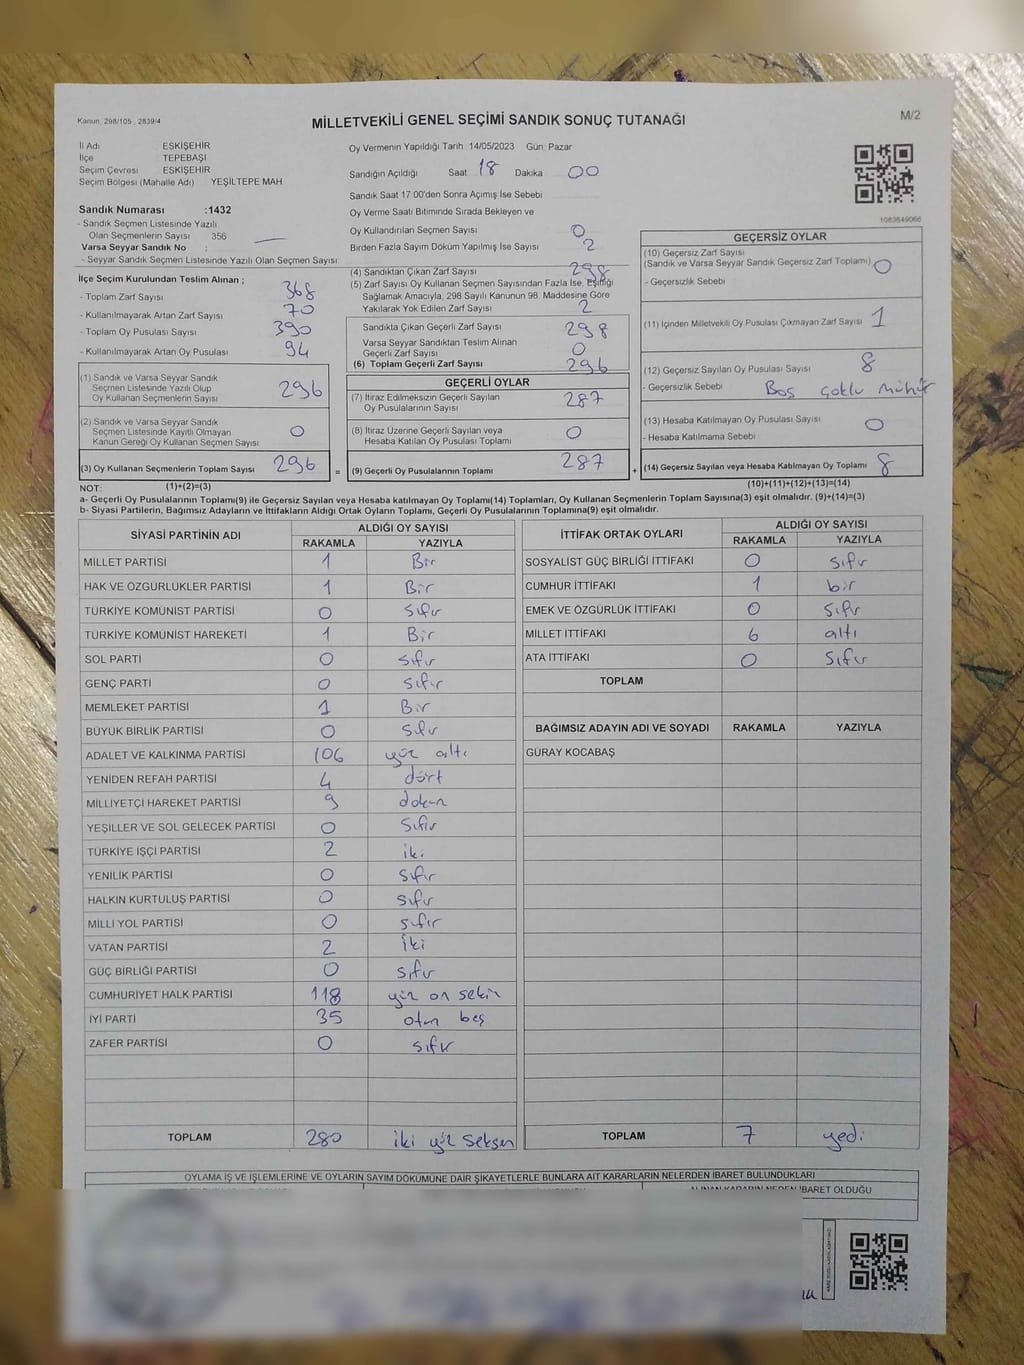 Kanun: 298/105 , 2839/4
MİLLETVEKİLİ GENEL SEÇİMİ SANDIK SONUÇ TUTANAĞI
M/2
İl Adı : ESKİŞEHİR
İlçe : TEPEBAŞI
Seçim Çevresi : ESKİŞEHİR
Seçim Bölgesi (Mahalle Adı) : YEŞİLTEPE MAH.
Sandık Numarası :1432
- Sandık Seçmen Listesinde Yazılı
Olan Seçmenlerin Sayısı : 356
Varsa Seyyar Sandık No :
- Seyyar Sandık Seçmen Listesinde Yazılı Olan Seçmen Sayısı:
Oy Vermenin Yapıldığı Tarih :14/05/2023 Gün: Pazar
Sandığın Açıldığı Saat: 18 Dakika: 00
Sandık Saat 17:00'den Sonra Açımış İse Sebebi
Oy Verme Saati Bitiminde Sırada Bekleyen ve
Oy Kullandırılan Seçmen Sayısı : 0
Birden Fazla Sayım Döküm Yapılmış İse Sayısı : 2
1083649066
İlçe Seçim Kurulundan Teslim Alınan ;
- Toplam Zarf Sayısı : 368
- Kullanılmayarak Artan Zarf Sayısı : 70
- Toplam Oy Pusulası Sayısı : 390
- Kullanılmayarak Artan Oy Pusulası : 94
(1) Sandık ve Varsa Seyyar Sandık
Seçmen Listesinde Yazılı Olup
Oy Kullanan Seçmenlerin Sayısı : 296
(2) Sandık ve Varsa Seyyar Sandık
Seçmen Listesinde Kayıtlı Olmayan
Kanun Gereği Oy Kullanan Seçmen Sayısı : 0
(3) Oy Kullanan Seçmenlerin Toplam Sayısı : 296
(4) Sandıktan Çıkan Zarf Sayısı : 298
(5) Zarf Sayısı Oy Kullanan Seçmen Sayısından Fazla İse, Eşitliği
Sağlamak Amacıyla, 298 Sayılı Kanunun 98. Maddesine Göre
Yakılarak Yok Edilen Zarf Sayısı : 2
Sandıkta Çıkan Geçerli Zarf Sayısı : 298
Varsa Seyyar Sandıktan Teslim Alınan
Geçerli Zarf Sayısı : 0
(6) Toplam Geçerli Zarf Sayısı : 296
GEÇERLİ OYLAR
(7) İtiraz Edilmeksizin Geçerli Sayılan
Oy Pusulalarının Sayısı : 287
(8) İtiraz Üzerine Geçerli Sayılan veya
Hesaba Katılan Oy Pusulası Toplamı : 0
= (9) Geçerli Oy Pusulalarının Toplamı : 287
GEÇERSİZ OYLAR
(10) Geçersiz Zarf Sayısı
(Sandık ve Varsa Seyyar Sandık Geçersiz Zarf Toplamı) : 0
- Geçersizlik Sebebi :
(11) İçinden Milletvekili Oy Pusulası Çıkmayan Zarf Sayısı : 1
(12) Geçersiz Sayılan Oy Pusulası Sayısı : 8
- Geçersizlik Sebebi : Boş çoklu mühür
(13) Hesaba Katılmayan Oy Pusulası Sayısı : 0
- Hesaba Katılmama Sebebi :
+ (14) Geçersiz Sayılan veya Hesaba Katılmayan Oy Toplamı : 8
NOT: (1)+(2)=(3) (10)+(11)+(12)+(13)=(14)
a- Geçerli Oy Pusulalarının Toplamı(9) ile Geçersiz Sayılan veya Hesaba katılmayan Oy Toplamı(14) Toplamları, Oy Kullanan Seçmenlerin Toplam Sayısına(3) eşit olmalıdır. (9)+(14)=(3)
b- Siyasi Partilerin, Bağımsız Adayların ve İttifakların Aldığı Ortak Oyların Toplamı, Geçerli Oy Pusulalarının Toplamına(9) eşit olmalıdır.
SİYASİ PARTİNİN ADI ALDIĞI OY SAYISI
RAKAMLA YAZIYLA
MİLLET PARTİSİ 1 Bir
HAK VE ÖZGÜRLÜKLER PARTİSİ 1 Bir
TÜRKİYE KOMÜNİST PARTİSİ 0 Sıfır
TÜRKİYE KOMÜNİST HAREKETİ 1 Bir
SOL PARTİ 0 Sıfır
GENÇ PARTİ 0 Sıfır
MEMLEKET PARTİSİ 1 Bir
BÜYÜK BİRLİK PARTİSİ 0 Sıfır
ADALET VE KALKINMA PARTİSİ 106 yüz altı
YENİDEN REFAH PARTİSİ 4 dört
MİLLİYETÇİ HAREKET PARTİSİ 9 dokuz
YEŞİLLER VE SOL GELECEK PARTİSİ 0 Sıfır
TÜRKİYE İŞÇİ PARTİSİ 2 iki
YENİLİK PARTİSİ 0 sıfır
HALKIN KURTULUŞ PARTİSİ 0 sıfır
MİLLİ YOL PARTİSİ 0 sıfır
VATAN PARTİSİ 2 İki
GÜÇ BİRLİĞİ PARTİSİ 0 sıfır
CUMHURİYET HALK PARTİSİ 118 yüz on sekiz
İYİ PARTİ 35 otuz beş
ZAFER PARTİSİ 0 sıfır
TOPLAM 280 iki yüz seksen
İTTİFAK ORTAK OYLARI ALDIĞI OY SAYISI
RAKAMLA YAZIYLA
SOSYALİST GÜÇ BİRLİĞİ İTTİFAKI 0 sıfır
CUMHUR İTTİFAKI 1 bir
EMEK VE ÖZGÜRLÜK İTTİFAKI 0 sıfır
MİLLET İTTİFAKI 6 altı
ATA İTTİFAKI 0 Sıfır
TOPLAM
BAĞIMSIZ ADAYIN ADI VE SOYADI RAKAMLA YAZIYLA
GÜRAY KOCABAŞ
TOPLAM 7 yedi
OYLAMA İŞ VE İŞLEMLERİNE VE OYLARIN SAYIM DÖKÜMÜNE DAİR ŞİKAYETLERLE BUNLARA AİT KARARLARIN NELERDEN İBARET BULUNDUKLARI
ALINAN KARARIN NEDEN İBARET OLDUĞU